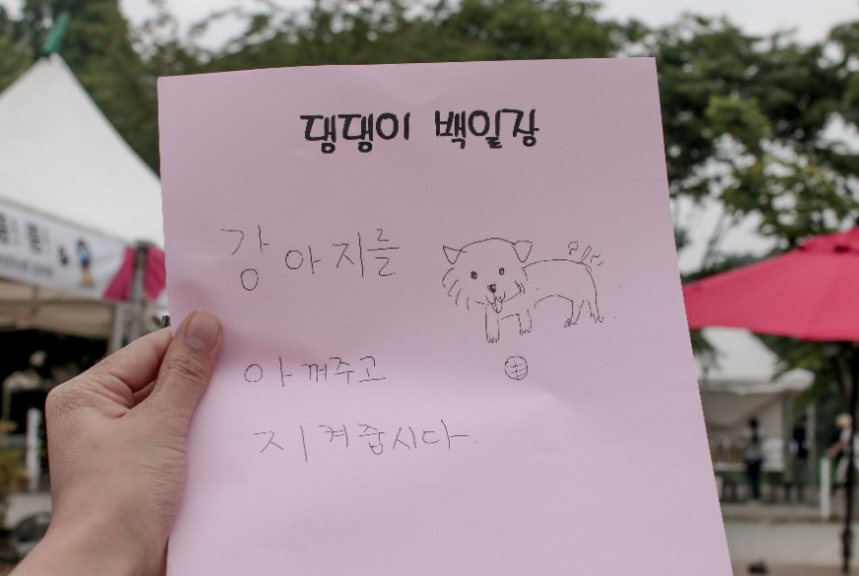 댕댕이 백일장
강아지를
아껴주고
지켜줍시다.